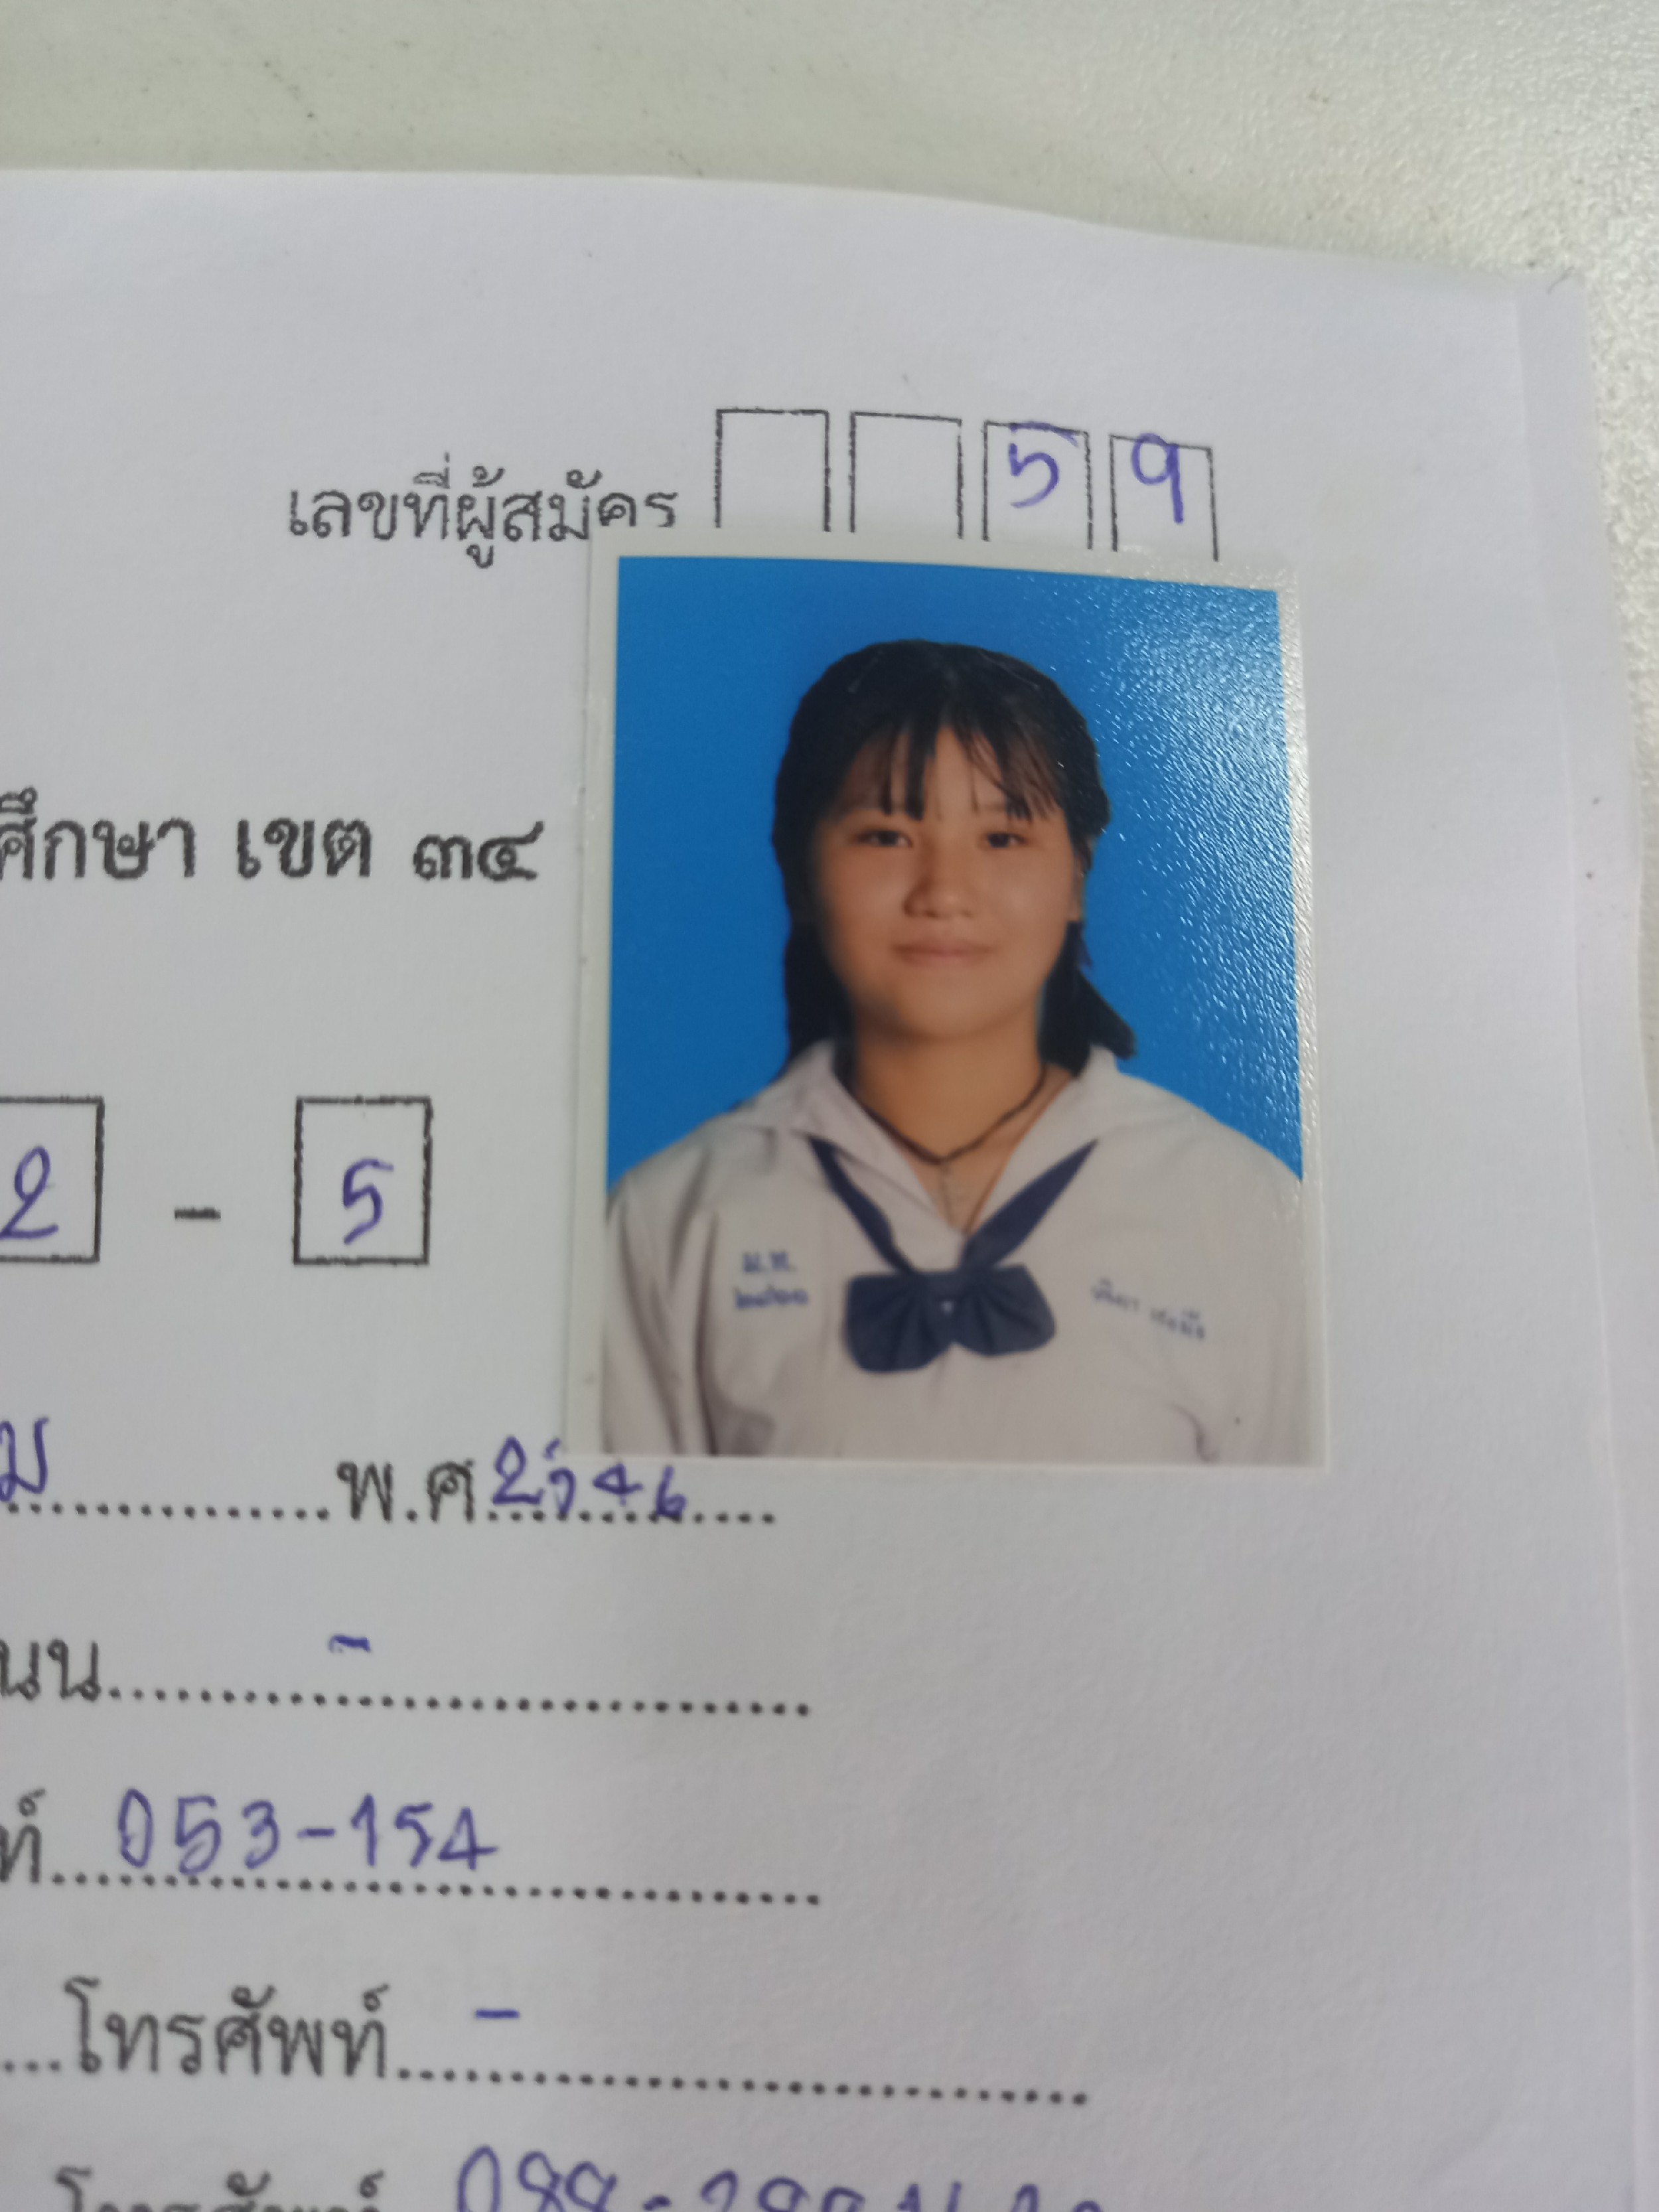 เลขที่ผู้สมัคร 59
ศึกษา เขต ๓๔
2 - 5
ม.ท.
ม พ.ศ. 2546
นน -
ท์ 053-154
โทรศัพท์ -
โทรศัพท์